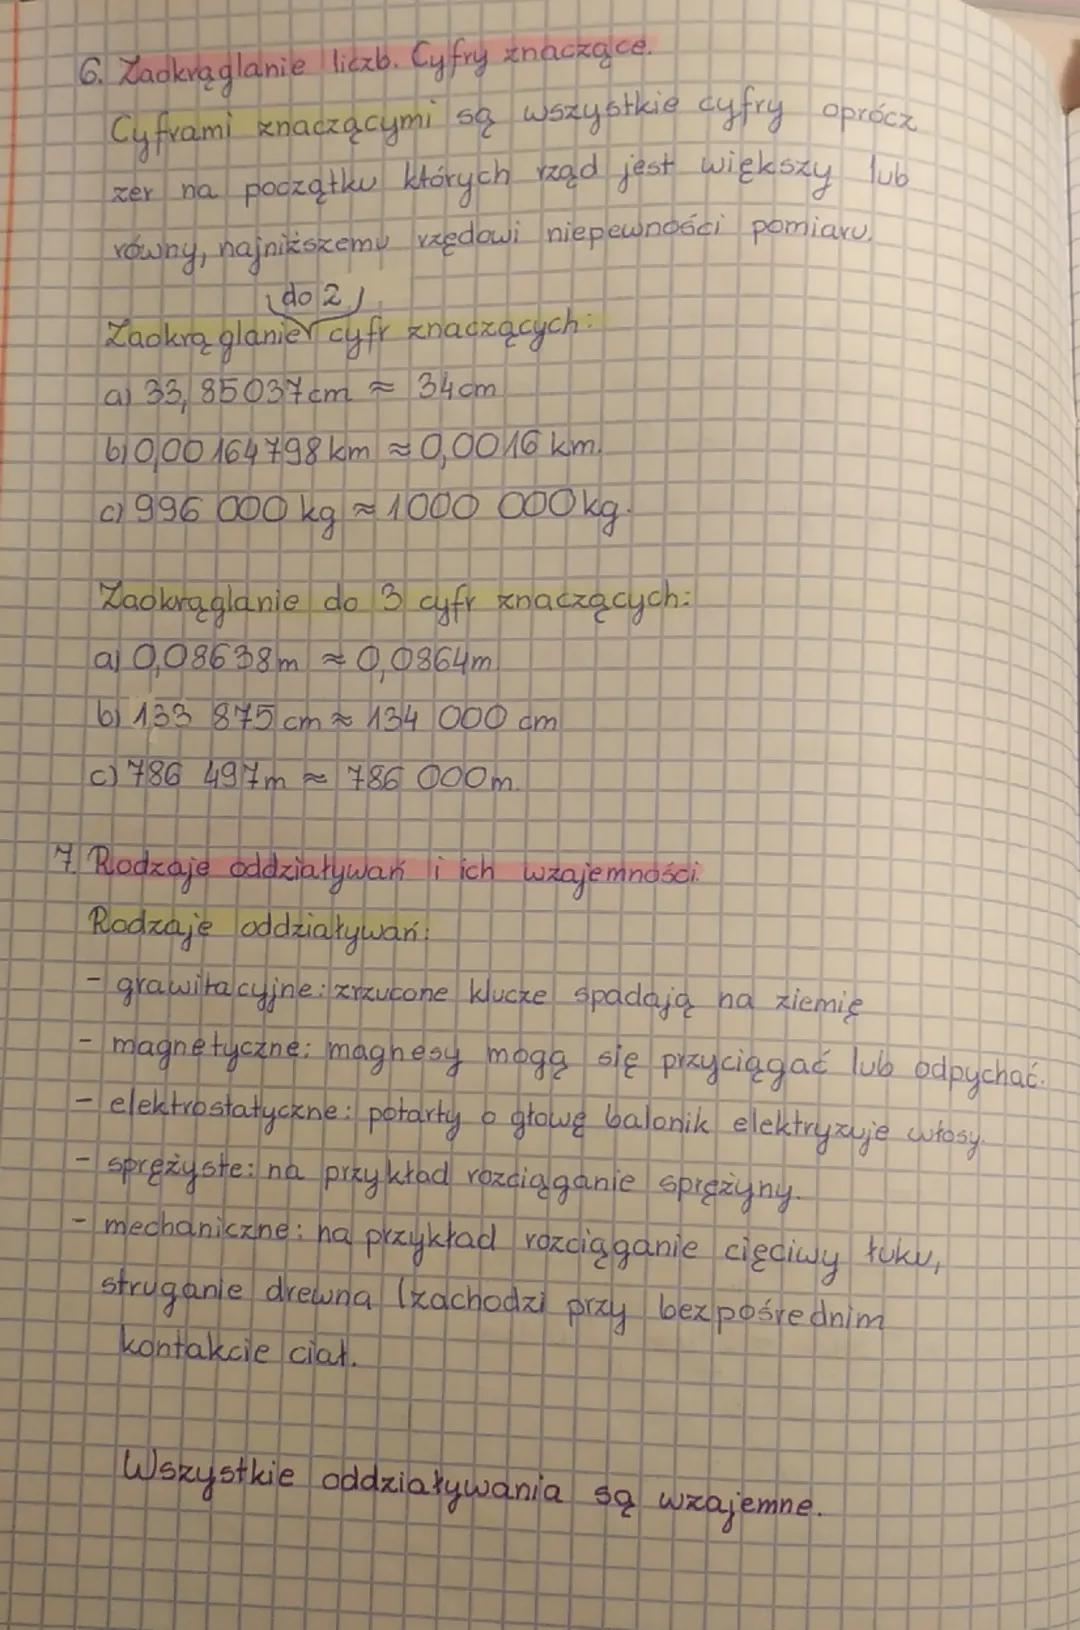 6. Zaokrąglanie liczb. Cyfry znaczące.
Cyframi znaczącymi są wszystkie cyfry oprócz
zer na początku których rząd jest większy lub
równy, najniższemu rzędowi niepewności pomiaru.
do 2
Zaokrąglanie cyfr znaczących:
a) 33,85037cm ≈ 34cm
b) 0,00164798 km ≈ 0,0016 km.
c) 996 000 kg ≈ 1000 000 kg.
Zaokrąglanie do 3 cyfr znaczących:
a) 0,08638m ≈ 0,0864m
b) 133 875 cm ≈ 134 000 cm
c) 786 497m ≈ 786 000m.
7. Rodzaje oddziaływań i ich wzajemności.
Rodzaje oddziaływań:
- grawitacyjne: zrzucone klucze spadają na ziemię
- magnetyczne: magnesy mogą się przyciągać lub odpychać.
- elektrostatyczne: potarty o głowę balonik elektryzuje włosy.
- sprężyste: na przykład rozciąganie sprężyny.
- mechaniczne: na przykład rozciąganie cięciwy łuku,
struganie drewna (zachodzi przy bezpośrednim
kontakcie ciał.
Wszystkie oddziaływania są wzajemne.